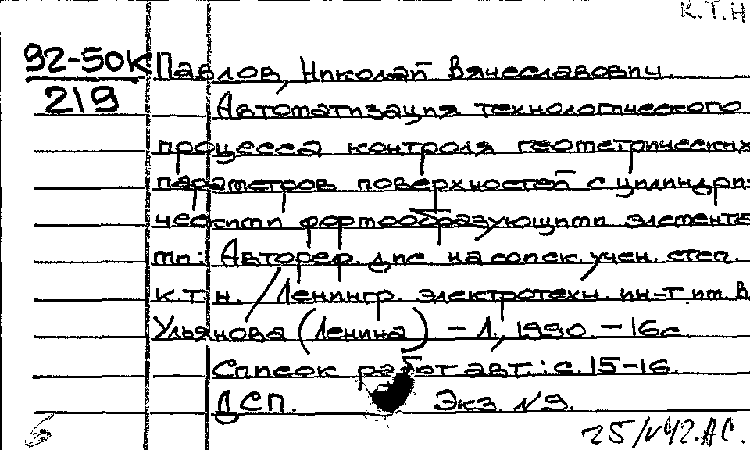 К.Т.Н
92-50К Павлов, Николай Вячеславович.
219 Автоматизация технологического
процесса контроля геометрических
параметров поверхностей с цилиндри-
ческими формообразующими элемента-
ми: Автореф. дис. на соиск. учен. степ.
к.т.н. / Ленингр. электротехн. ин-т им. В
Ульянова (Ленина) – Л., 1990. – 16с
Список работ авт.: с. 15-16.
ДСП. Экз. №9.